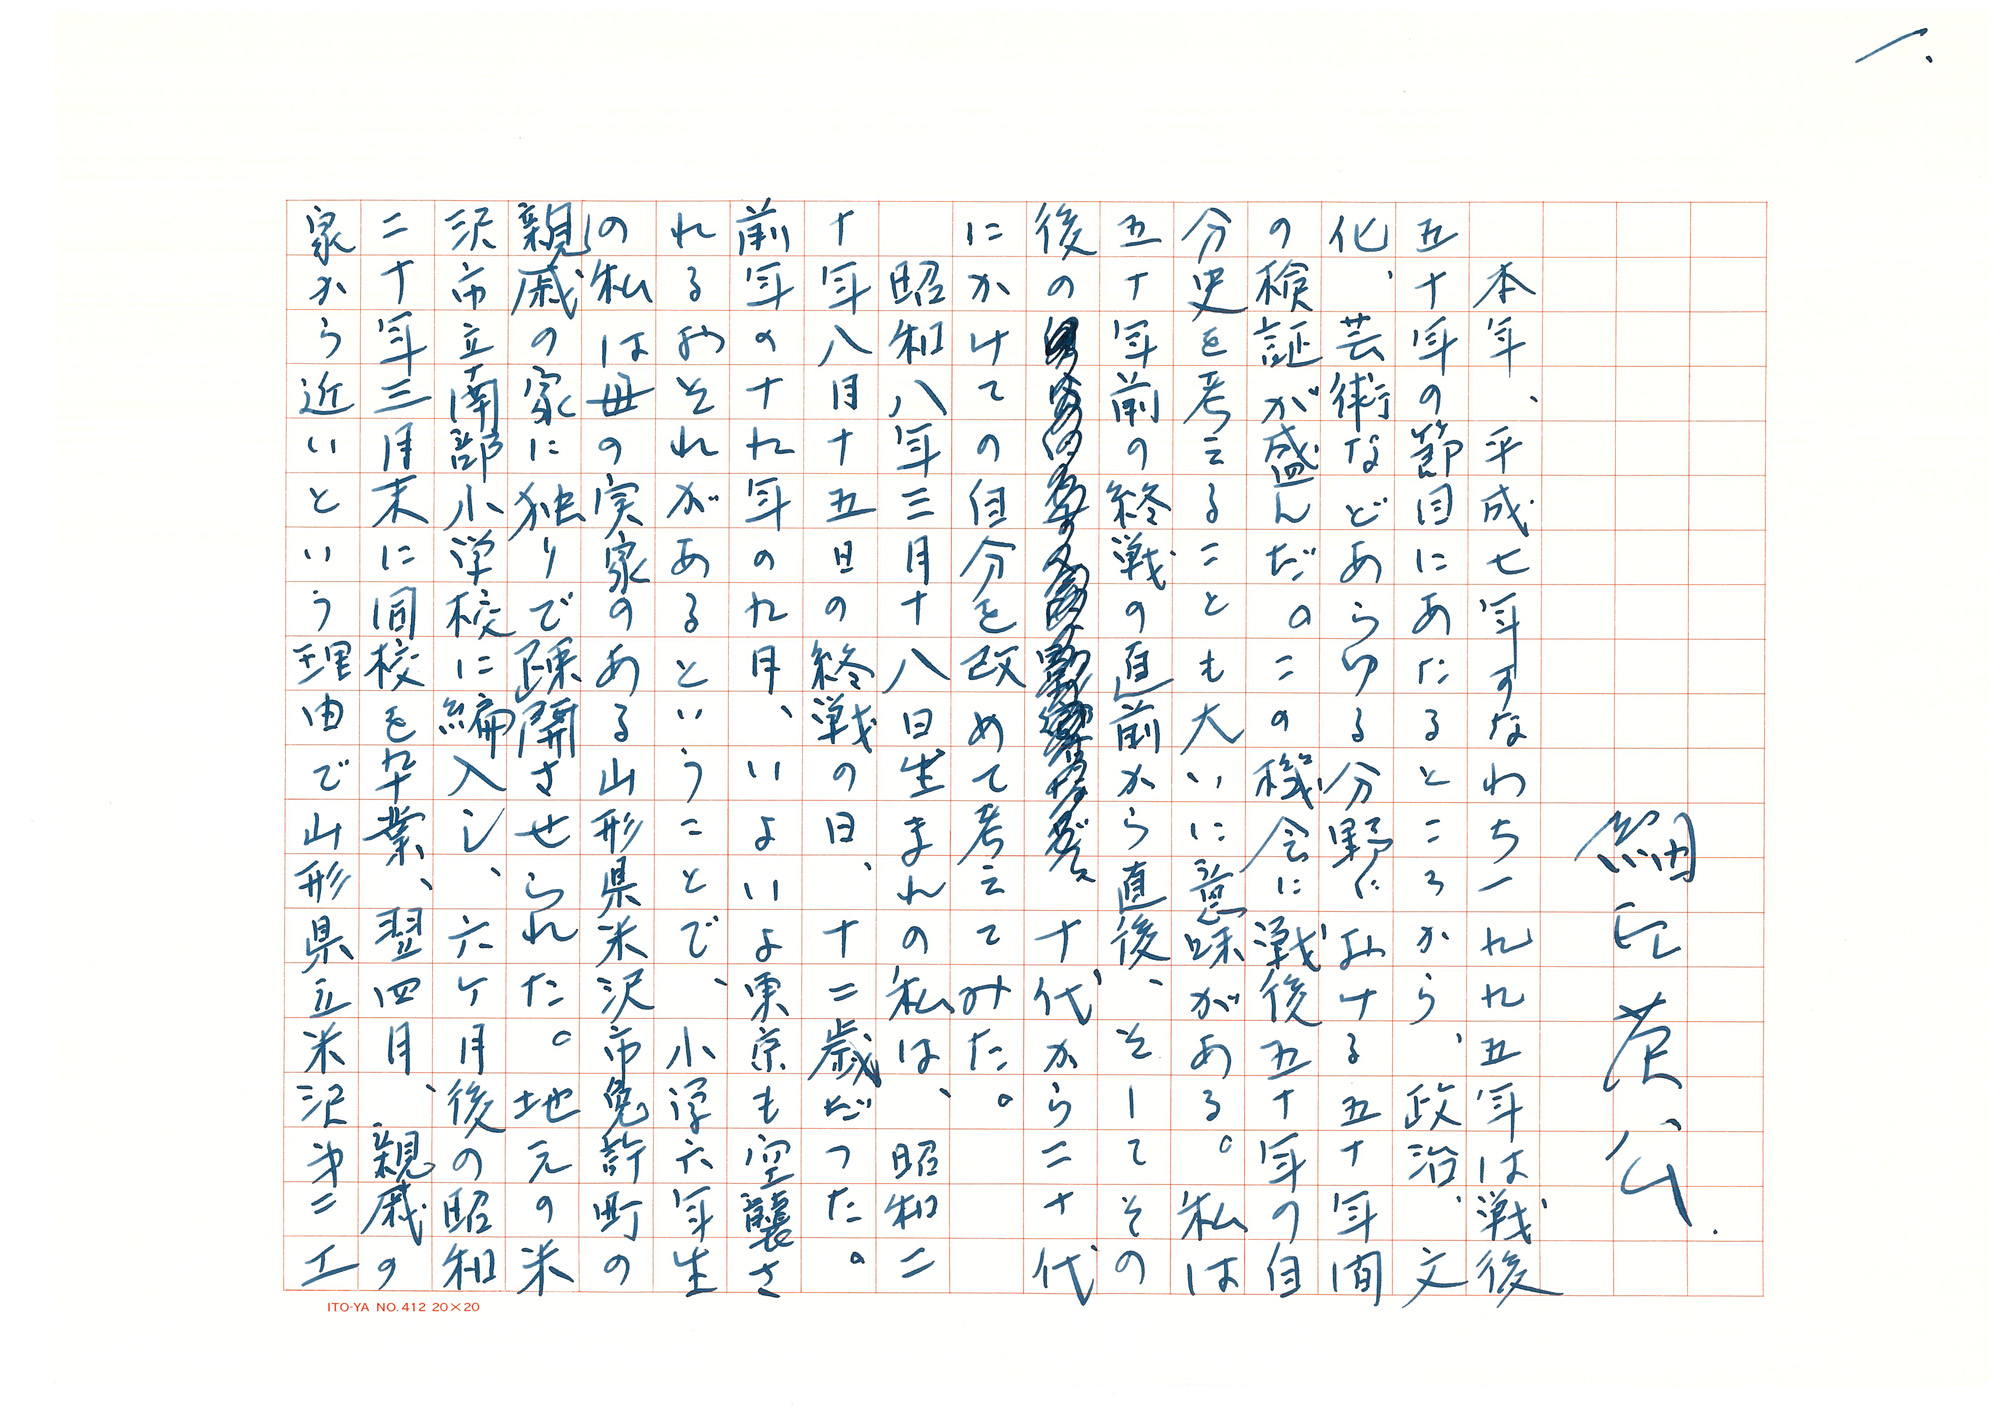 一、
細江英公.
本年、平成七年すなわち一九九五年は戦後
五十年の節目にあたるところから、政治、文
化、芸術などあらゆる分野における五十年間
の検証が盛んだ。この機会に戦後五十年の自
分史を考えることも大いに意味がある。私は
五十年前の終戦の直前から直後、そしてその
後の十代から二十代
にかけての自分を改めて考えてみた。
昭和八年三月十八日生まれの私は、昭和二
十年八月十五日の終戦の日、十二歳だった。
前年の十九年の九月、いよいよ東京も空襲さ
れるおそれがあるということで、小学六年生
の私は母の実家のある山形県米沢市免許町の
親戚の家に独りで疎開させられた。地元の米
沢市立南部小学校に編入し、六ケ月後の昭和
二十年三月末に同校を卒業、翌四月、親戚の
家から近いという理由で山形県立米沢第二工
ITO-YA NO.412 20×20